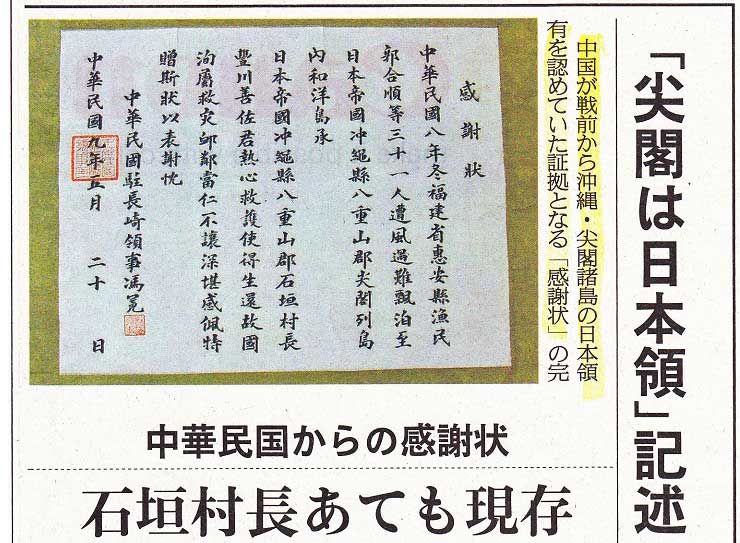 「尖閣は日本領」記述
中国が戦前から沖縄・尖閣諸島の日本領
有を認めていた証拠となる「感謝状」の完
感謝狀
中華民國八年冬福建省惠安縣漁民
郭合順等三十一人遭風遇難飄泊至
日本帝國冲繩縣八重山郡尖閣列島
內和洋島承
日本帝國冲繩縣八重山郡石垣村長
豐川善佐君熱心救護使得生還故國
洵屬救灾卹鄰當仁不讓深堪感佩特
贈斯狀以表謝忱
中華民國駐長崎領事馮冕
中華民國九年五月二十日
中華民国からの感謝状
石垣村長あても現存